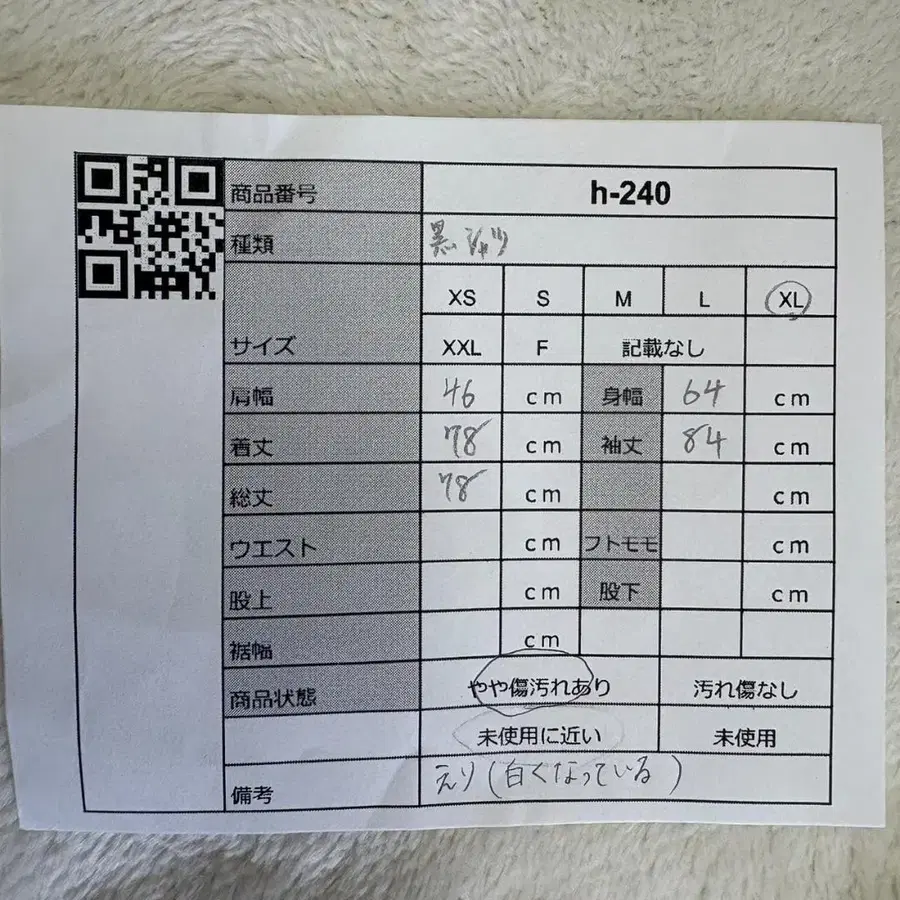 商品番号 h-240
種類 黒シャツ
XS S M L XL
サイズ XXL F 記載なし
肩幅 46 cm 身幅 64 cm
着丈 78 cm 袖丈 84 cm
総丈 78 cm cm
ウエスト cm フトモモ cm
股上 cm 股下 cm
裾幅 cm
商品状態 やや傷汚れあり 汚れ傷なし
未使用に近い 未使用
備考 えり(白くなっている)